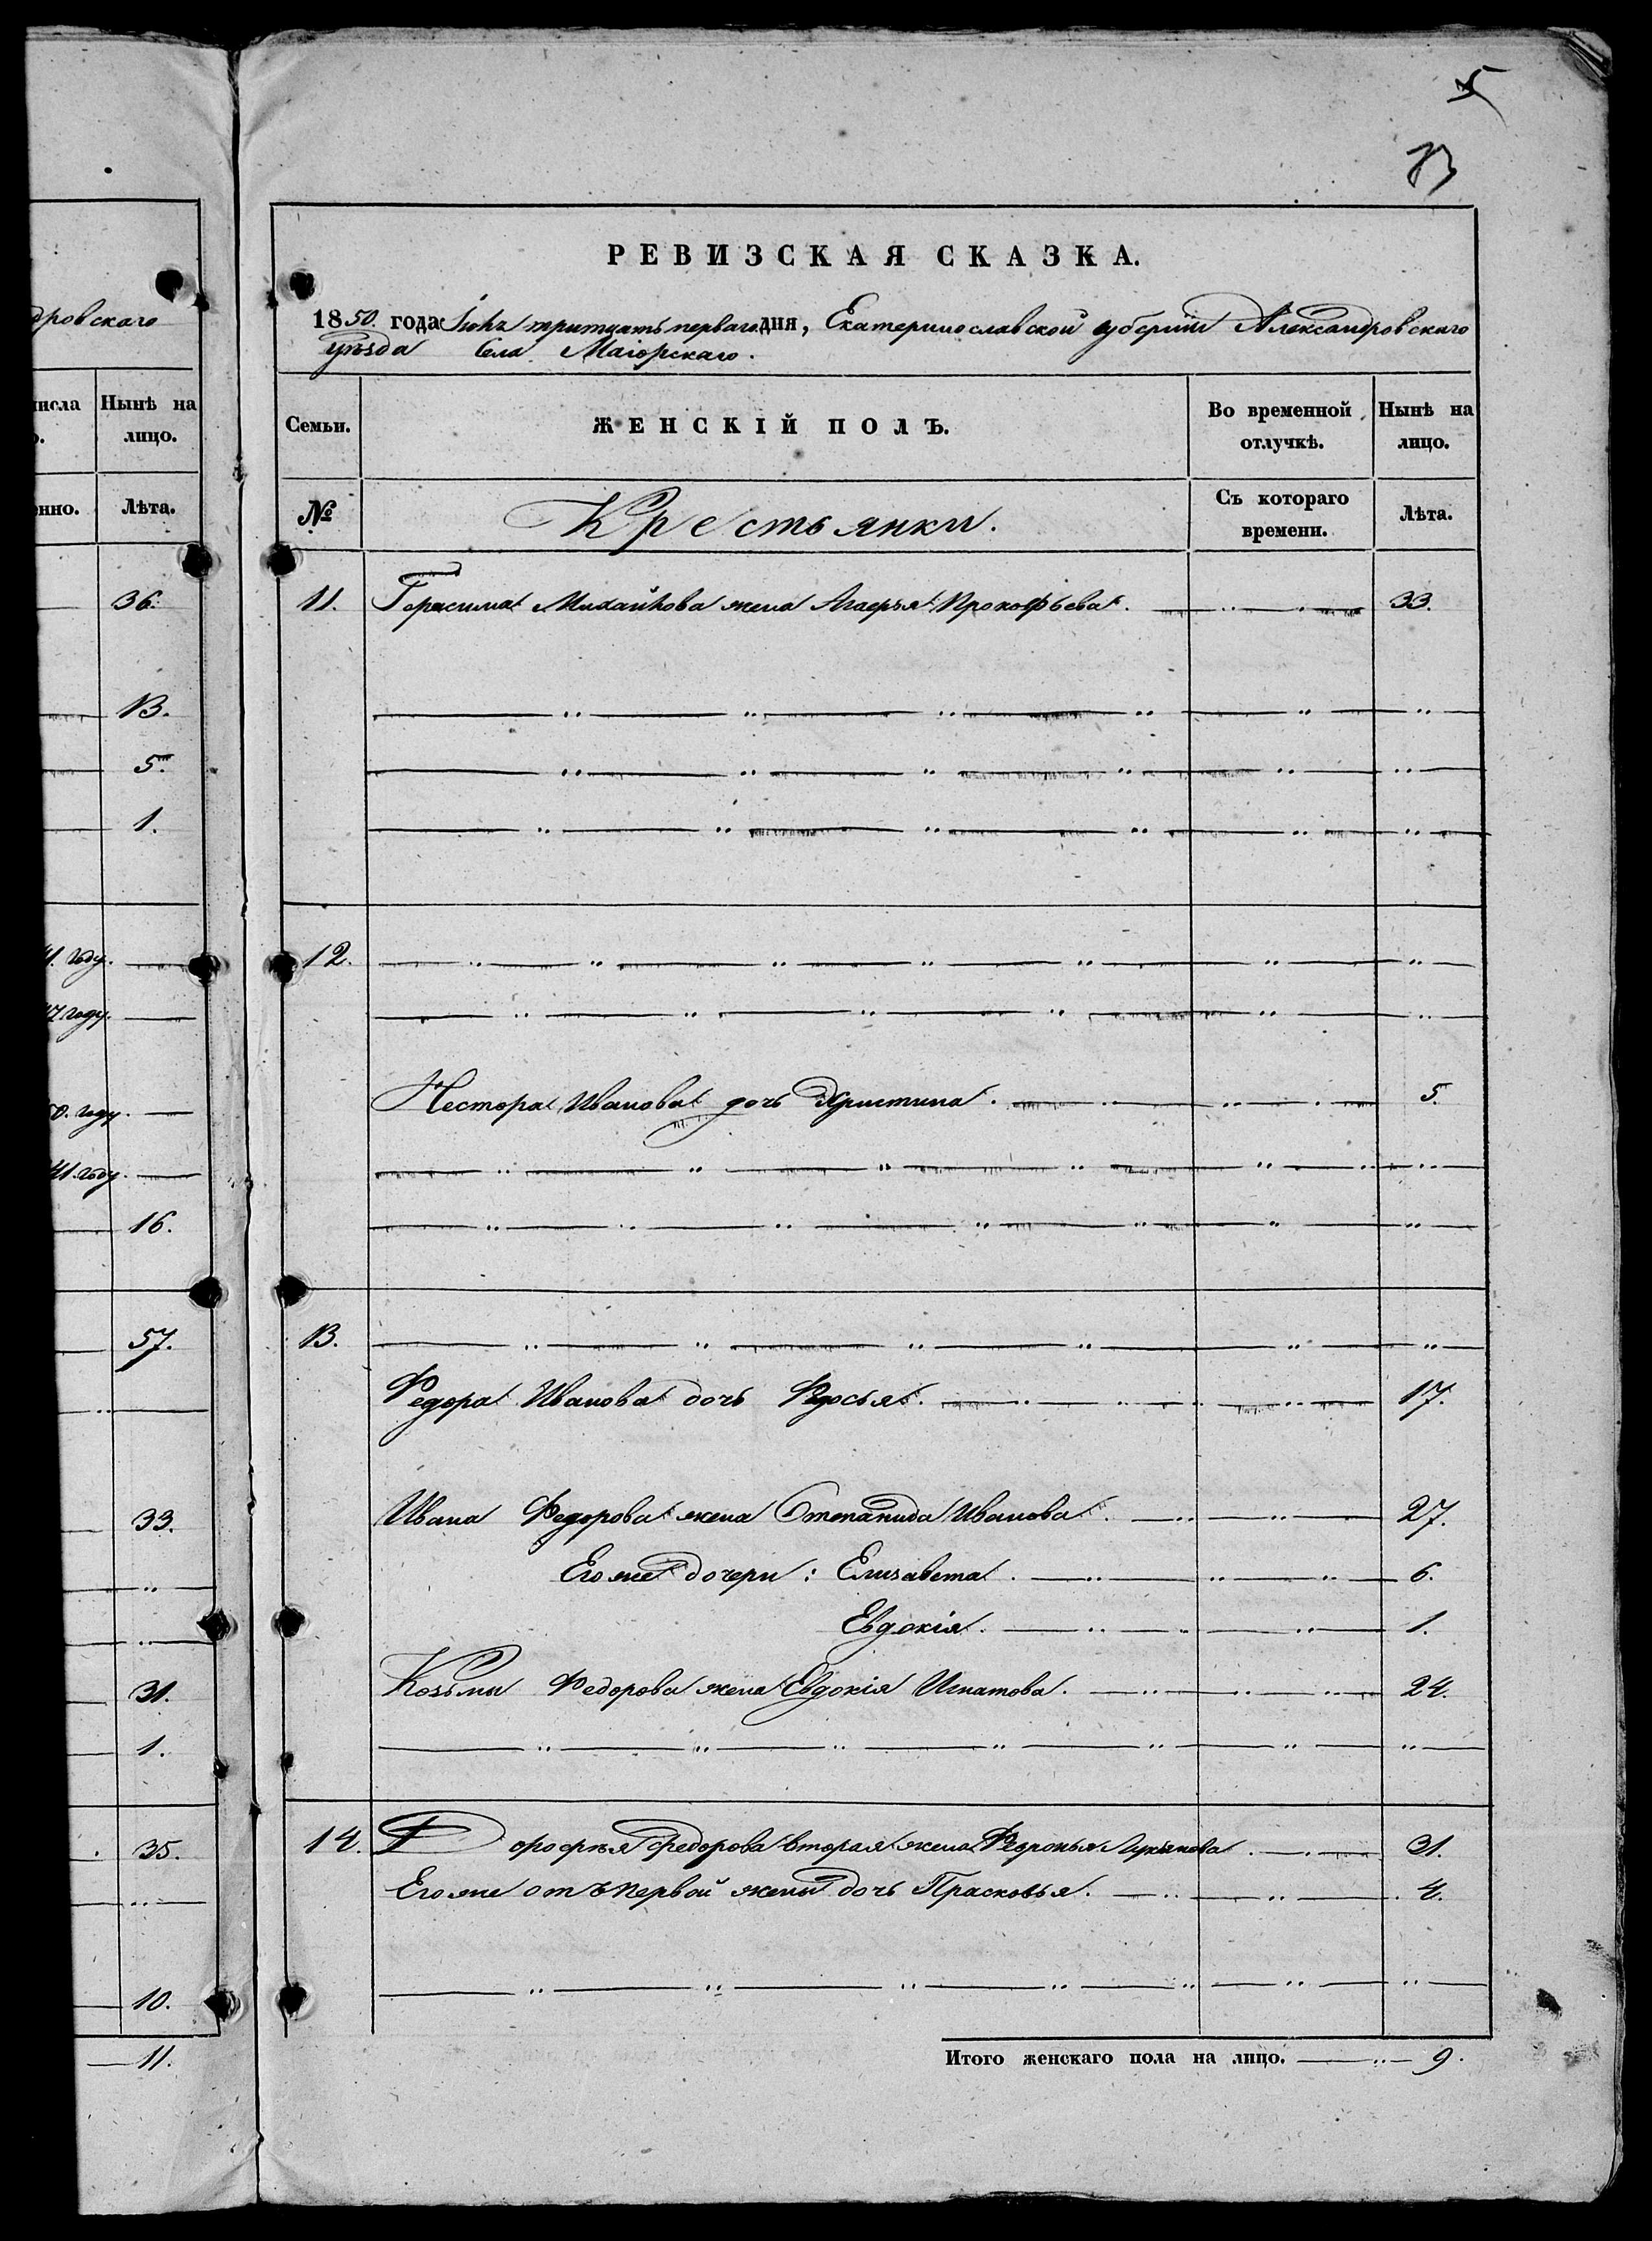 5
73
дровскаго
числа
Нынѣ на
лицо.
Лѣта.
36.
13.
5.
1.
41. году.
47 году.
50. году.
41. году.
16.
57.
33.
31.
1.
35.
10.
11.
РЕВИЗСКАЯ СКАЗКА.
1850. года Іюля тритцать перваго дня, Екатеринославской губерніи Александровскаго
уѣзда Села Маіорскаго.
Семьи. ЖЕНСКІЙ ПОЛЪ. Во временной отлучкѣ. Нынѣ на лицо.
№ Крестьянки. Съ котораго времени. Лѣта.
11. Герасима Михайлова жена Агаѳья Прокофьева. 33.
12.
Нестора Иванова дочь Христина. 5.
13.
Федора Иванова дочь Федосья. 17.
Ивана Федорова жена Степанида Иванова. 27.
Его же дочери: Елизавета. 6.
Евдокія. 1.
Козьмы Федорова жена Евдокія Игнатова. 24.
14. Дорофея Федорова вторая жена Февронья Лукьянова. 31.
Его же отъ первой жены дочь Прасковья. 4.
Итого женскаго пола на лицо. 9.